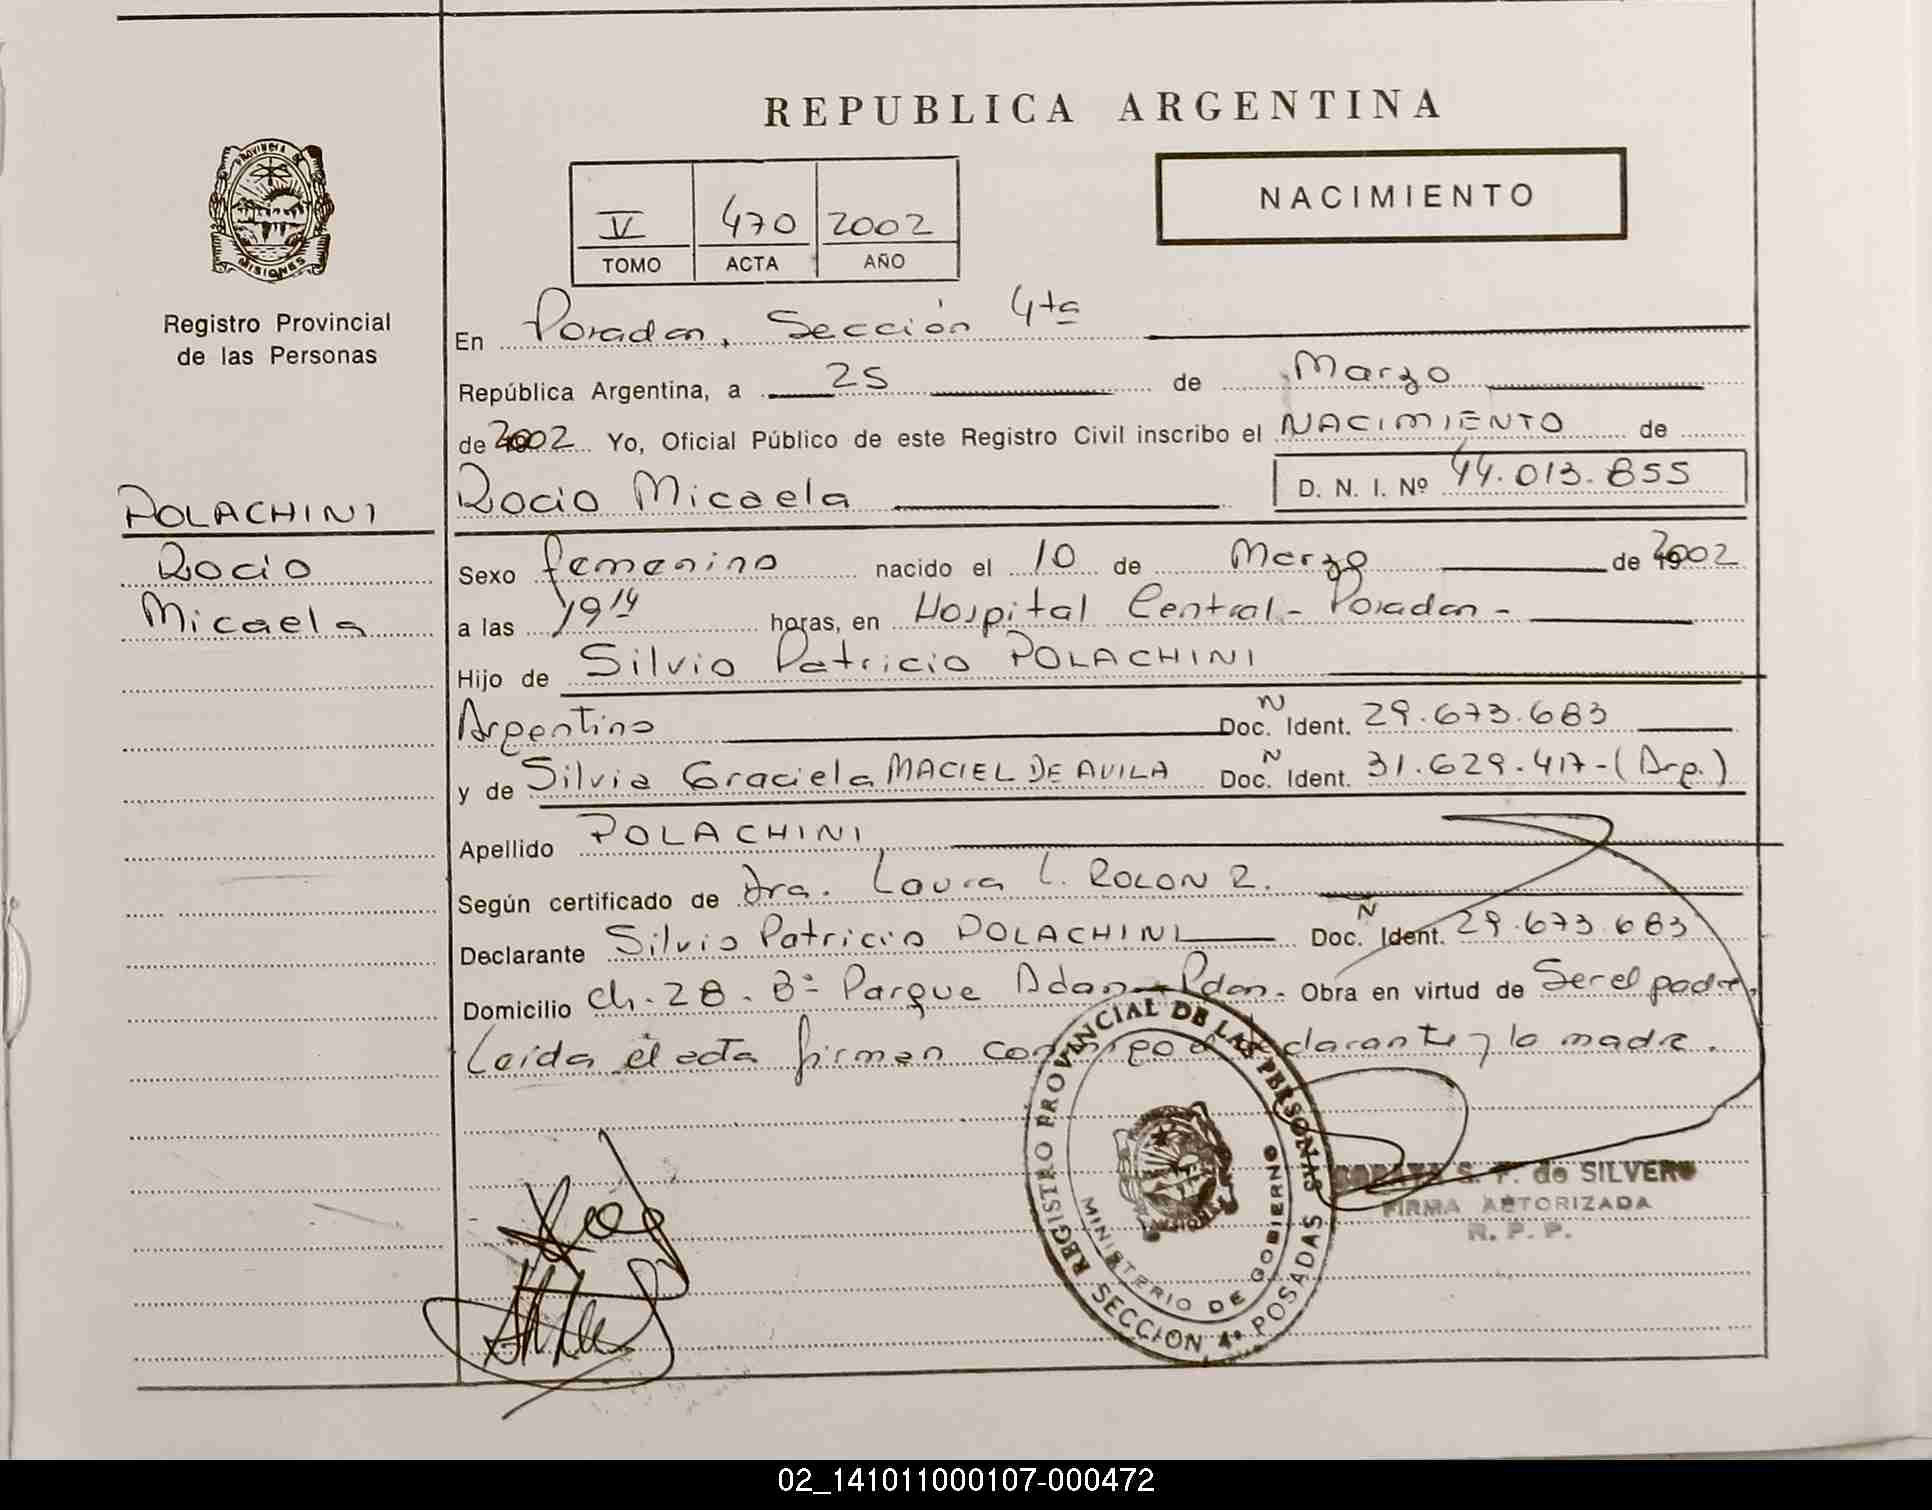 REPUBLICA ARGENTINA
NACIMIENTO
V 470 2002
TOMO ACTA AÑO
PROVINCIA DE MISIONES
Registro Provincial
de las Personas
POLACHINI
Rocio
Micaela
En Posadas, Sección 4ta
República Argentina, a 25 de Marzo
de 2002 Yo, Oficial Público de este Registro Civil inscribo el NACIMIENTO de
Rocio Micaela D. N. I. Nº 44.013.855
Sexo femenino nacido el 10 de Marzo de 2002
a las 19 14 horas, en Hospital Central - Posadas -
Hijo de Silvio Patricio POLACHINI
Argentino Doc. N Ident. 29.673.683
y de Silvia Graciela MACIEL DE AVILA Doc. N Ident. 31.629.417-(Arg.)
Apellido POLACHINI
Según certificado de Dra. Laura L. ROLON R.
Declarante Silvio Patricio POLACHINI Doc. N Ident. 29.673.683
Domicilio Ch. 28. Bº Parque Adam - Pdas. Obra en virtud de Ser el padre,
Leída el acta firman conmigo el declarante y la madre.
REGISTRO PROVINCIAL DE LAS PERSONAS
MINISTERIO DE GOBIERNO
SECCION 4ª POSADAS
S. F. de SILVERO
FIRMA AUTORIZADA
R. P. P.
02_141011000107-000472